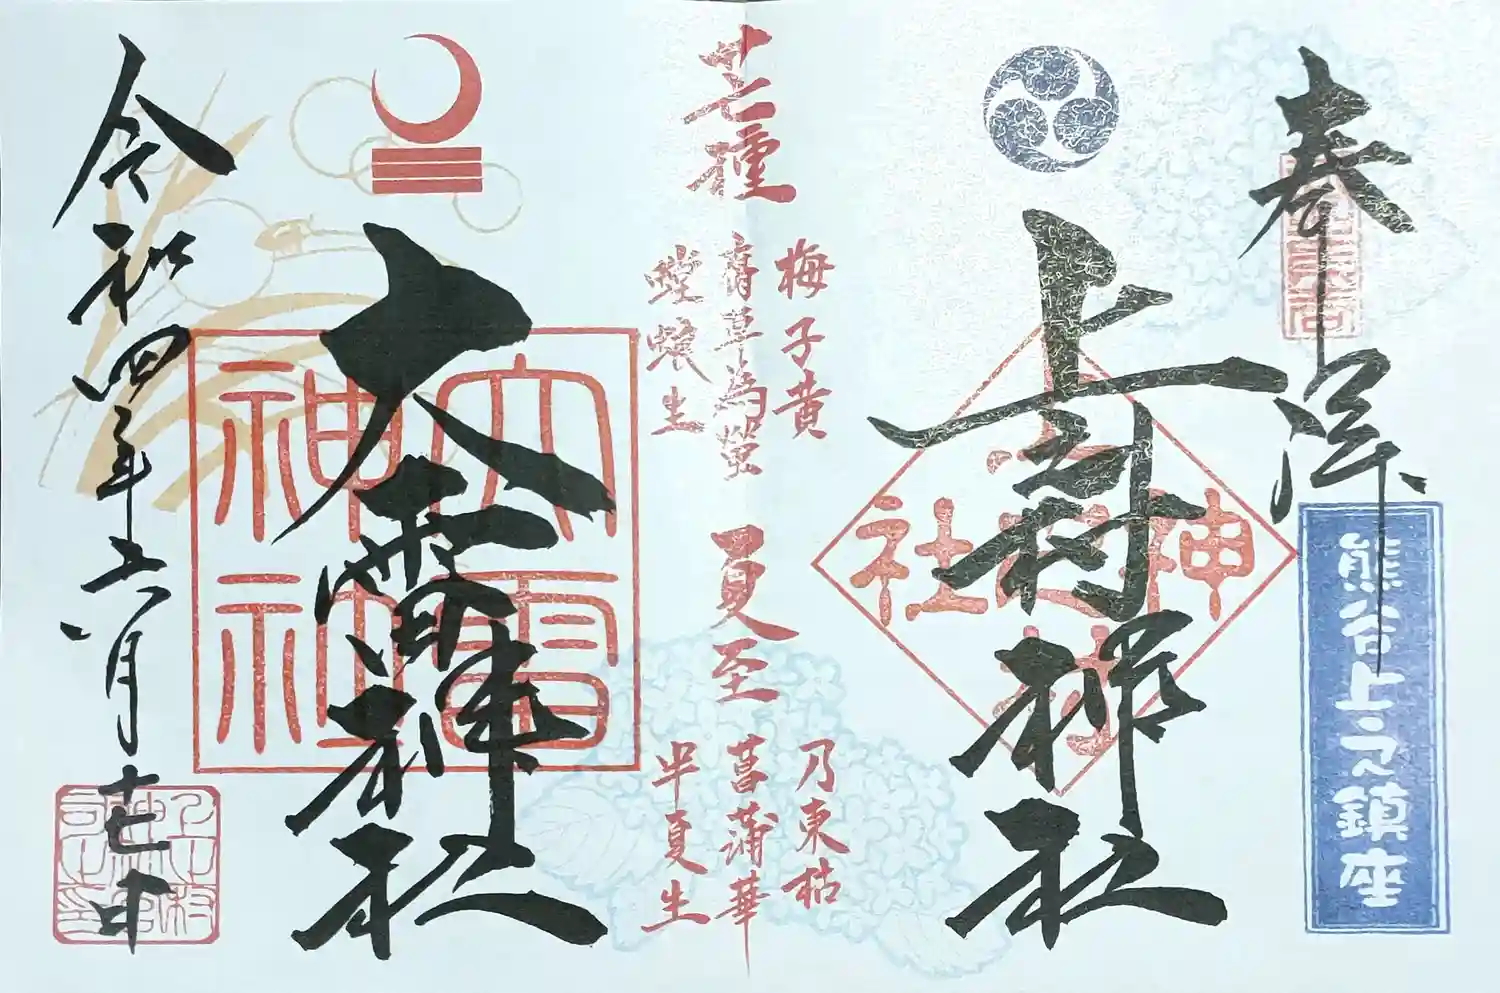 奉拝
熊谷上之鎮座
上之村神社
上之村神社
芒種
梅子黄
腐草為螢
蟷螂生
夏至
乃東枯
菖蒲華
半夏生
大雷神社
大雷神社
令和四年六月十七日